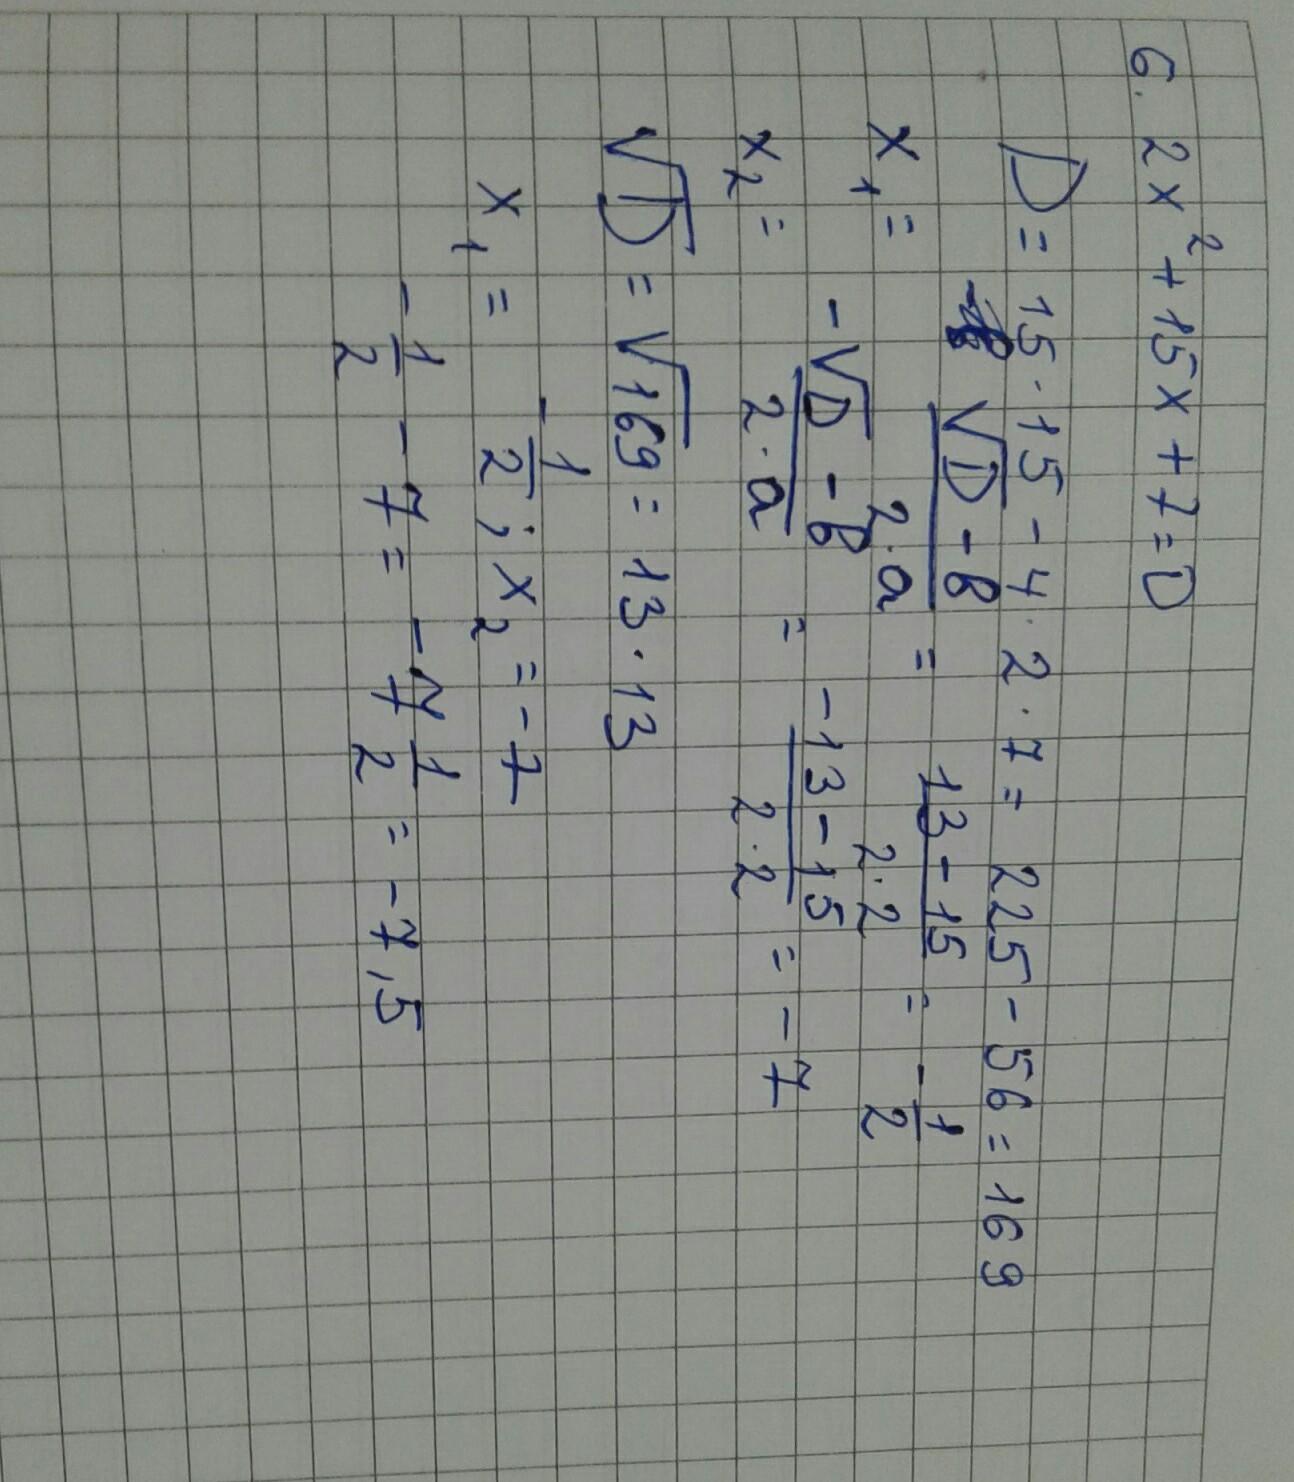 6. 2x² + 15x + 7 = 0
D = 15 · 15 - 4 · 2 · 7 = 225 - 56 = 169
x₁ = (√D - в)/(2 · a) = (13 - 15)/(2 · 2) = -1/2
x₂ = (-√D - в)/(2 · a) = (-13 - 15)/(2 · 2) = -7
√D = √169 = 13 · 13
x₁ = -1/2 ; x₂ = -7
-1/2 - 7 = -7 1/2 = -7,5